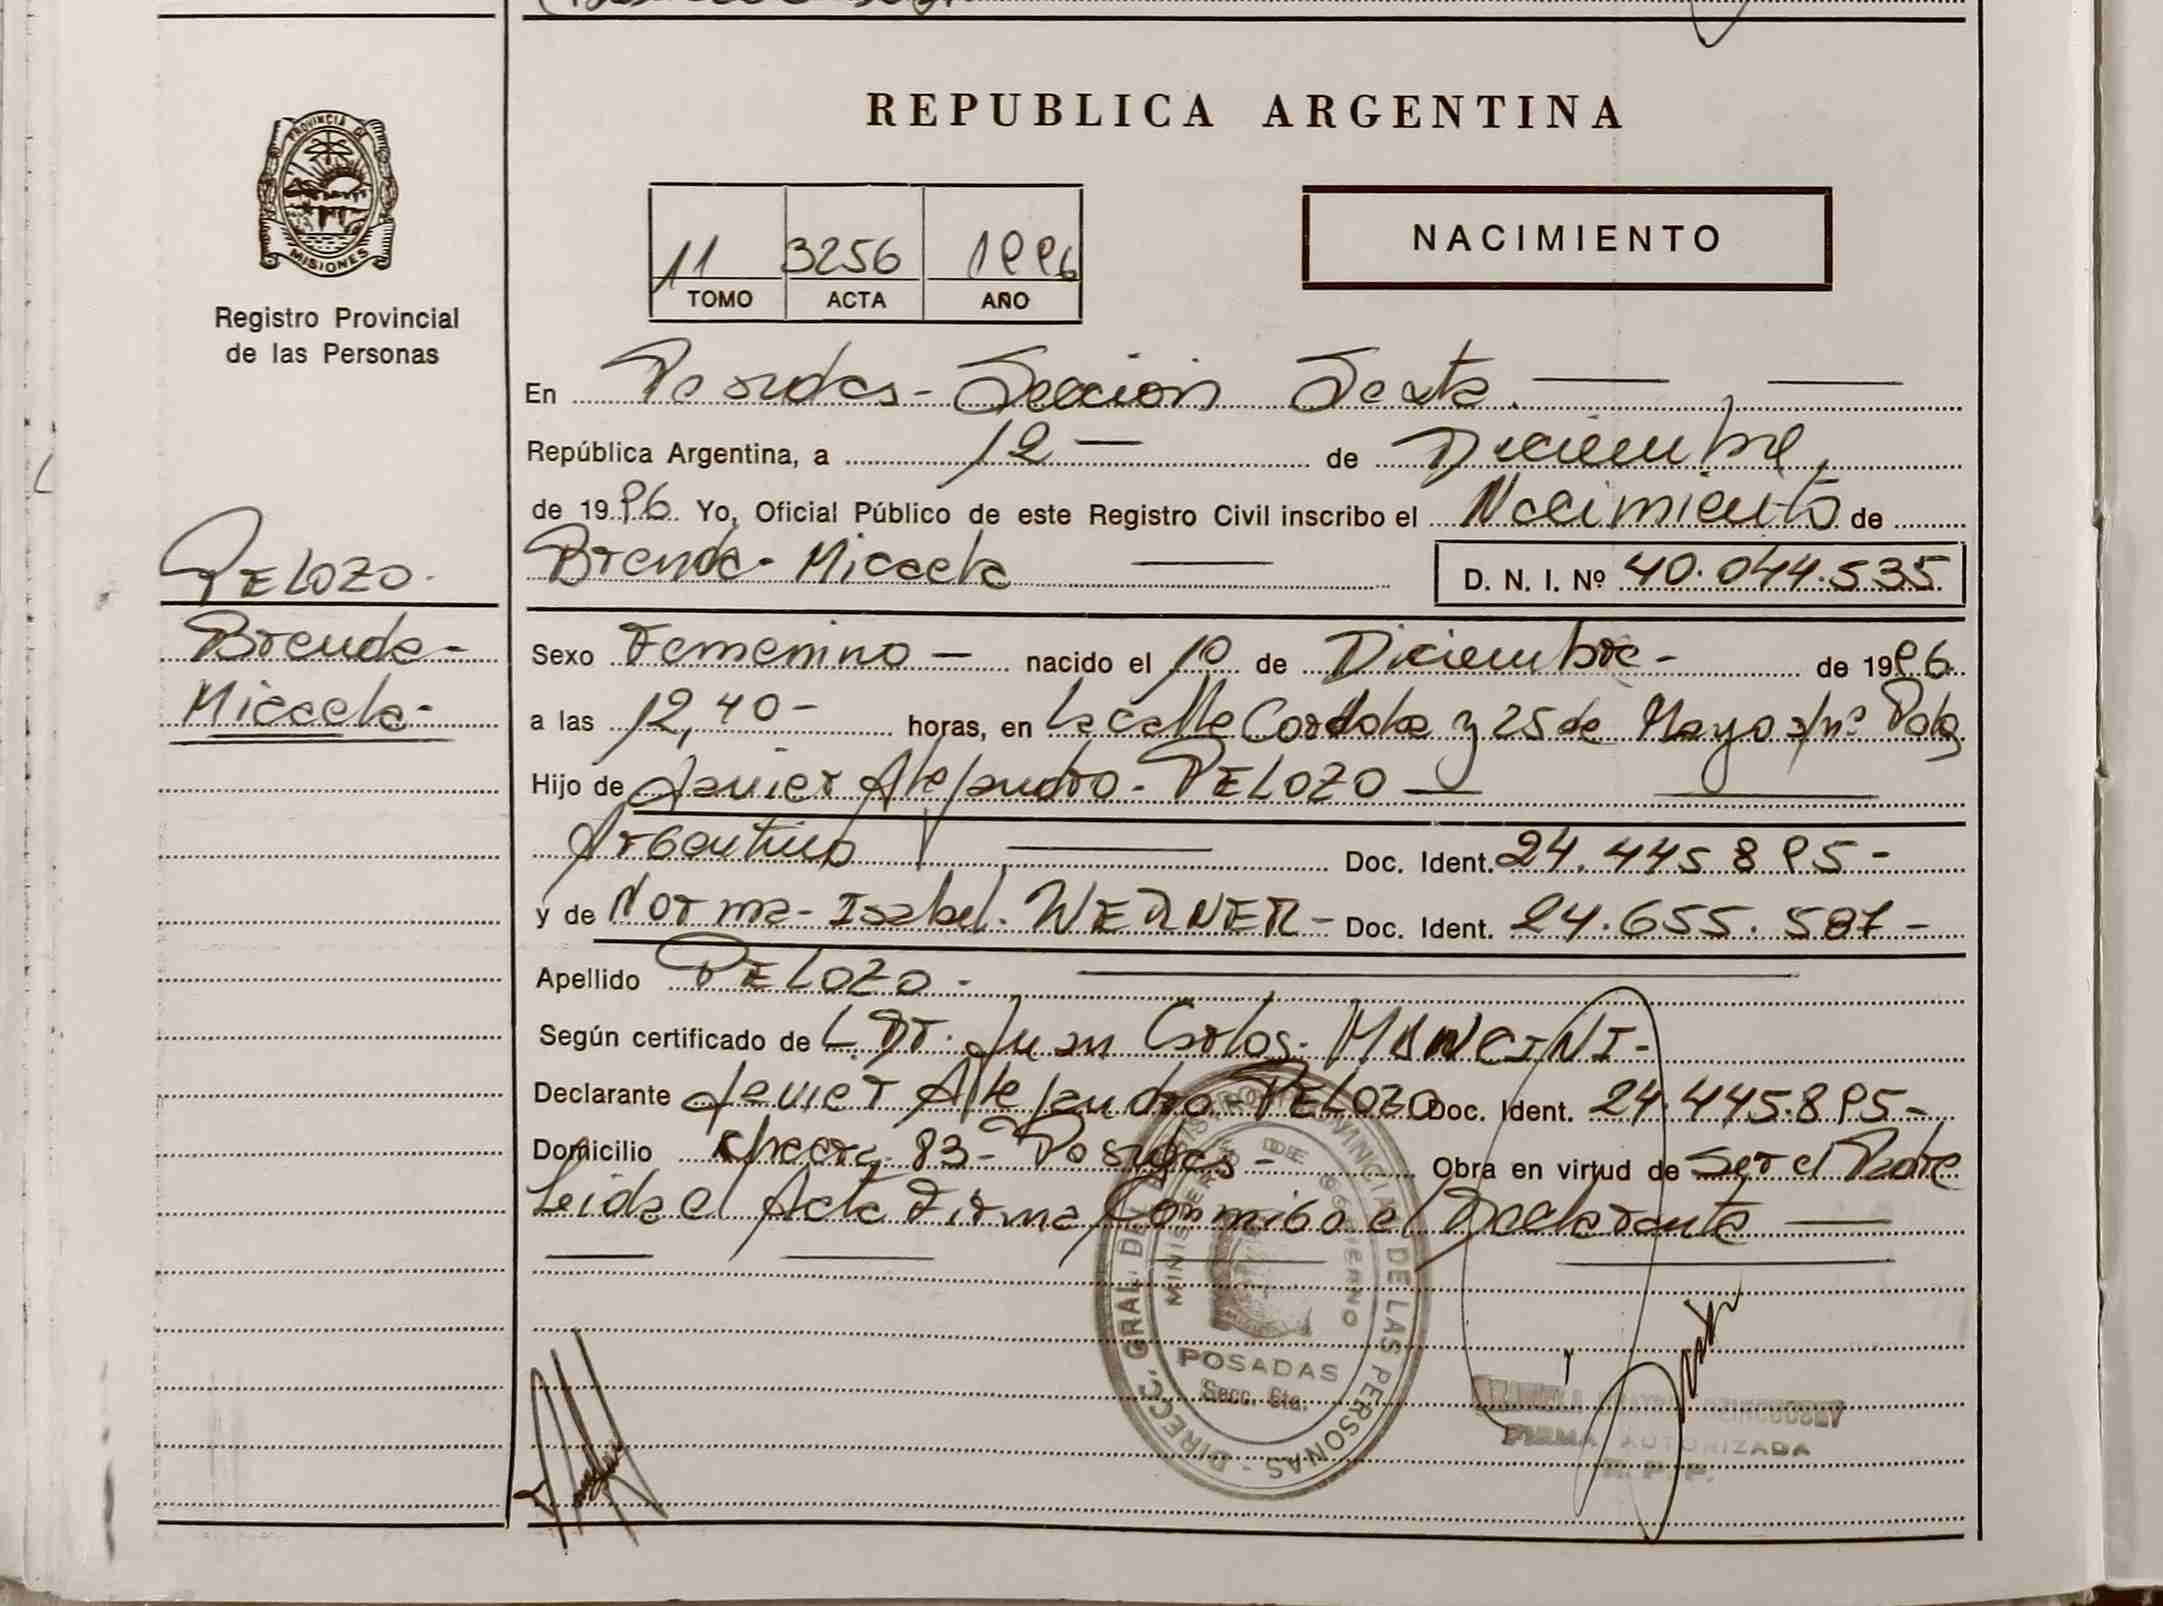 REPUBLICA ARGENTINA
PROVINCIA DE
MISIONES
Registro Provincial
de las Personas
11 3256 1996
TOMO ACTA AÑO
NACIMIENTO
En Posadas - Sección Sexta.
República Argentina, a 12 de Diciembre,
de 1996 Yo, Oficial Público de este Registro Civil inscribo el Nacimiento de
Brenda - Micaela D. N. I. Nº 40.044.535
PELOZO.
Brenda-
Micaela-
Sexo Femenino - nacido el 10 de Diciembre - de 1996.
a las 12,40- horas, en la calle Cordoba y 25 de Mayo s/nº Pdas
Hijo de Javier Alejandro - PELOZO
Argentino Doc. Ident. 24.445.895-
y de Norma - Isabel - WERNER - Doc. Ident. 24.655.587-
Apellido PELOZO -
Según certificado de Dr. Juan Carlos - MANCINI -
Declarante Javier Alejandro - PELOZO Doc. Ident. 24.445.895-
Domicilio Chacra 83 - Posadas - Obra en virtud de ser el Padre
Leida el Acta Firma Conmigo el Declarante
DIRECC. GRAL. DEL REGISTRO PROVINCIAL DE LAS PERSONAS -
MINISTERIO DE GOBIERNO
POSADAS
Secc. 6ta.
FIRMA AUTORIZADA
R. P. P.